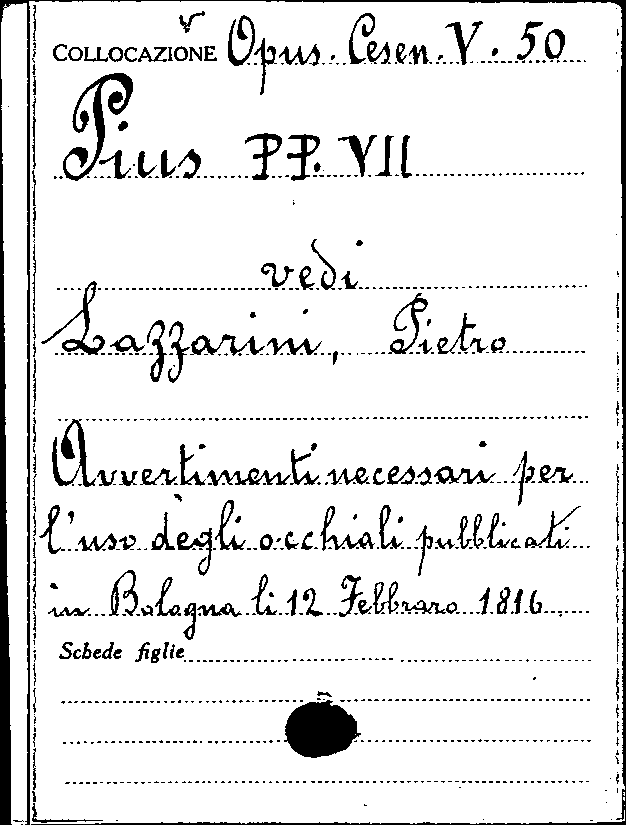 COLLOCAZIONE Opus. Cesen. V. 50
Pius PP. VII
vedi
Lazzarini, Pietro
Avvertimenti necessari per
l'uso degli occhiali pubblicati
in Bologna li 12 Febbraro 1816.
Schede figlie